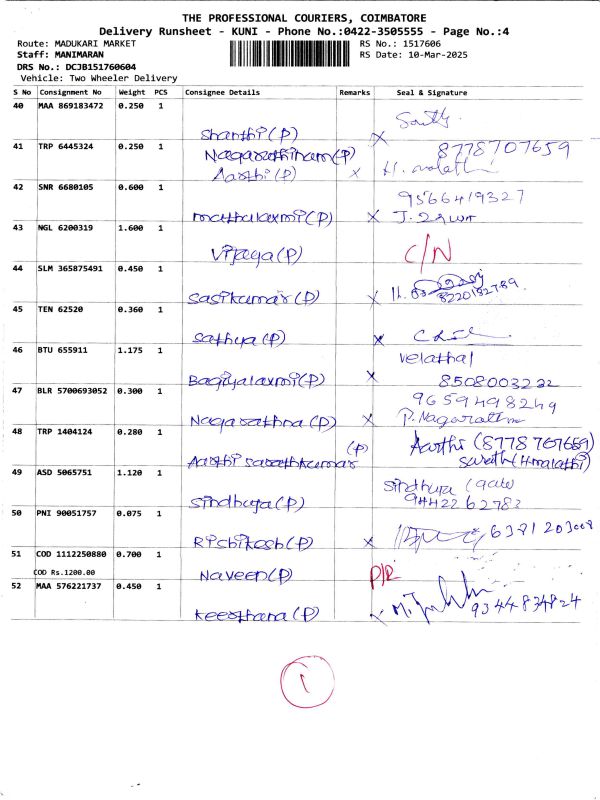 THE PROFESSIONAL COURIERS, COIMBATORE
Delivery Runsheet - KUNI - Phone No.:0422-3505555 - Page No.:4
Route: MADUKARI MARKET RS No.: 1517606
Staff: MANIMARAN RS Date: 10-Mar-2025
DRS No.: DCJB151760604
Vehicle: Two Wheeler Delivery
S No Consignment No Weight PCS Consignee Details Remarks Seal & Signature
40 MAA 869183472 0.250 1
Shanthi (P) X
41 TRP 6445324 0.250 1 8778707659
Nagarathinam (P)
Aarthi (P) X
42 SNR 6680105 0.600 1 9566419327
mathulaxmi (P) X
43 NGL 6200319 1.600 1
Vijaya (P) C/N
44 SLM 365875491 0.450 1
Sasikumar (P) X 8220192789
45 TEN 62520 0.360 1
Sathya (P) X
46 BTU 655911 1.175 1 Velathal
Bagiyalaxmi (P) X 8508003232
47 BLR 5700693052 0.300 1 9659498249
Nagarathna (P) X P. Nagarathna
48 TRP 1404124 0.280 1 (P) Aarthi (8778707659)
Aarthi sarathkumar Sarath (H.malathi)
49 ASD 5065751 1.120 1 Sindhuja
Sindhuja (P) 9442262783
50 PNI 90051757 0.075 1
Rishikesh (P) X 6381203008
51 COD 1112250880 0.700 1
COD Rs.1200.00 Naveen (P) P/R
52 MAA 576221737 0.450 1
Keerthana (P) X 9344834824
1